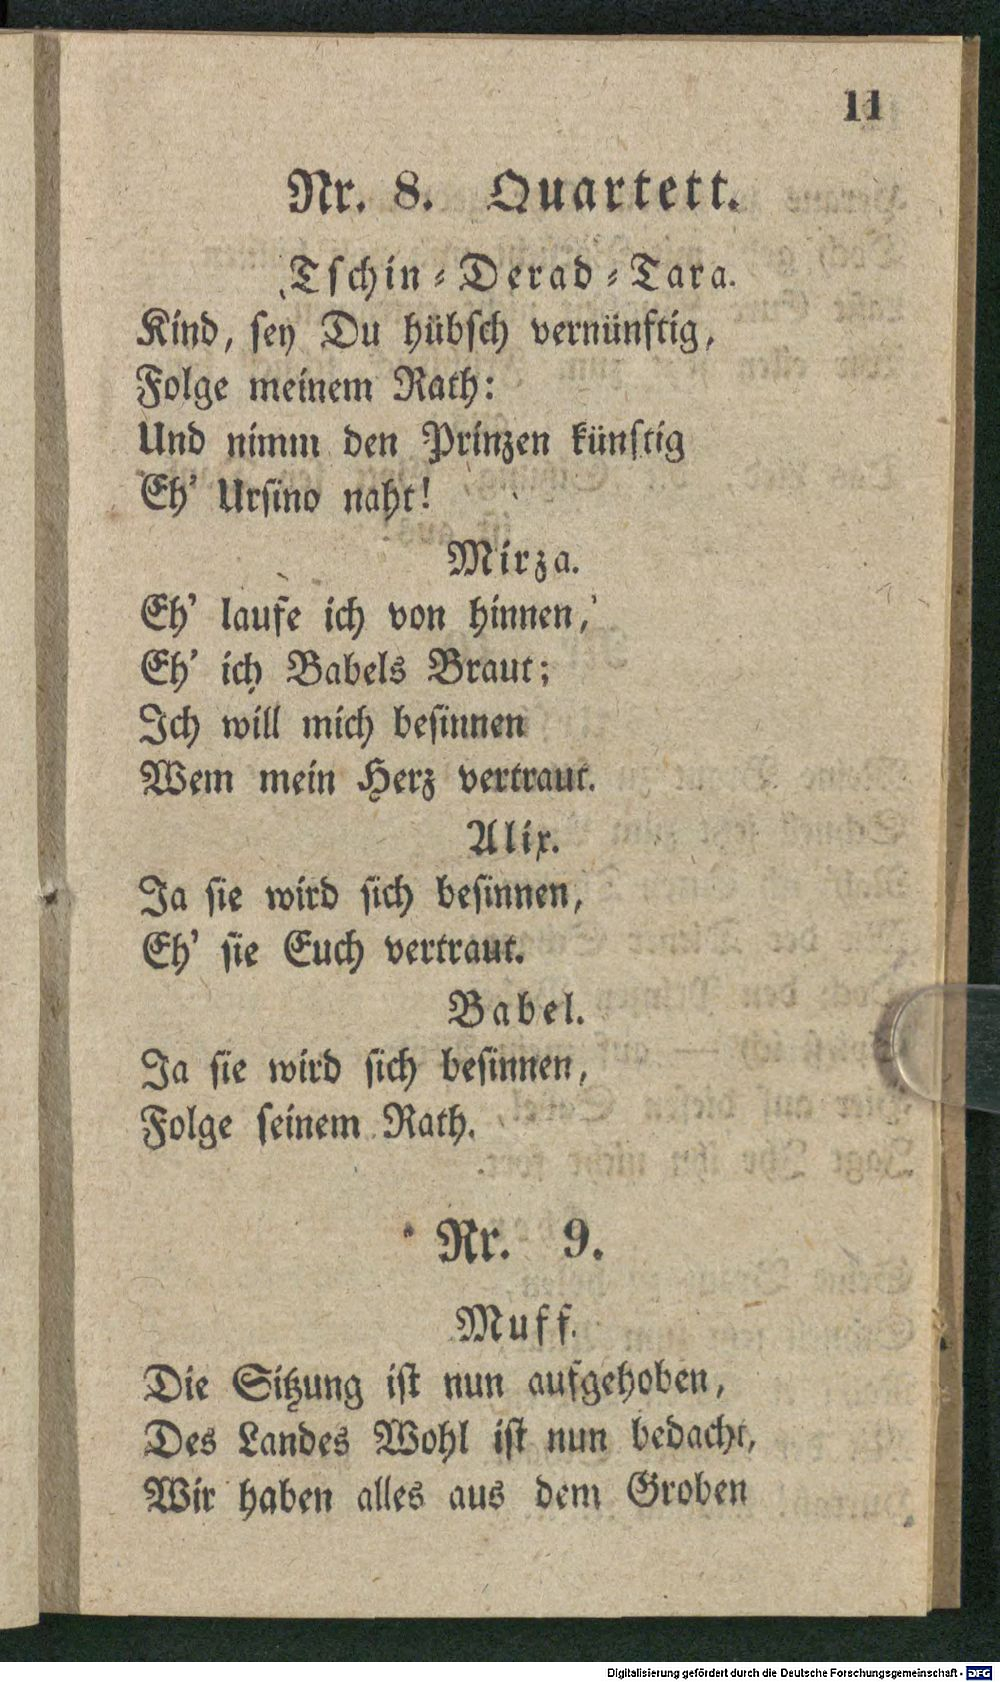 11
Nr. 8. Quartett.
Tschin-Derad-Tara.
Kind, sey Du hübsch vernünftig,
Folge meinem Rath:
Und nimm den Prinzen künftig
Eh' Ursino naht!
Mirza.
Eh' laufe ich von hinnen,
Eh' ich Babels Braut;
Ich will mich besinnen
Wem mein Herz vertraut.
Alix.
Ja sie wird sich besinnen,
Eh' sie Euch vertraut.
Babel.
Ja sie wird sich besinnen,
Folge seinem Rath.
Nr. 9.
Muff.
Die Sitzung ist nun aufgehoben,
Des Landes Wohl ist nun bedacht,
Wir haben alles aus dem Groben
Digitalisierung gefördert durch die Deutsche Forschungsgemeinschaft - DFG